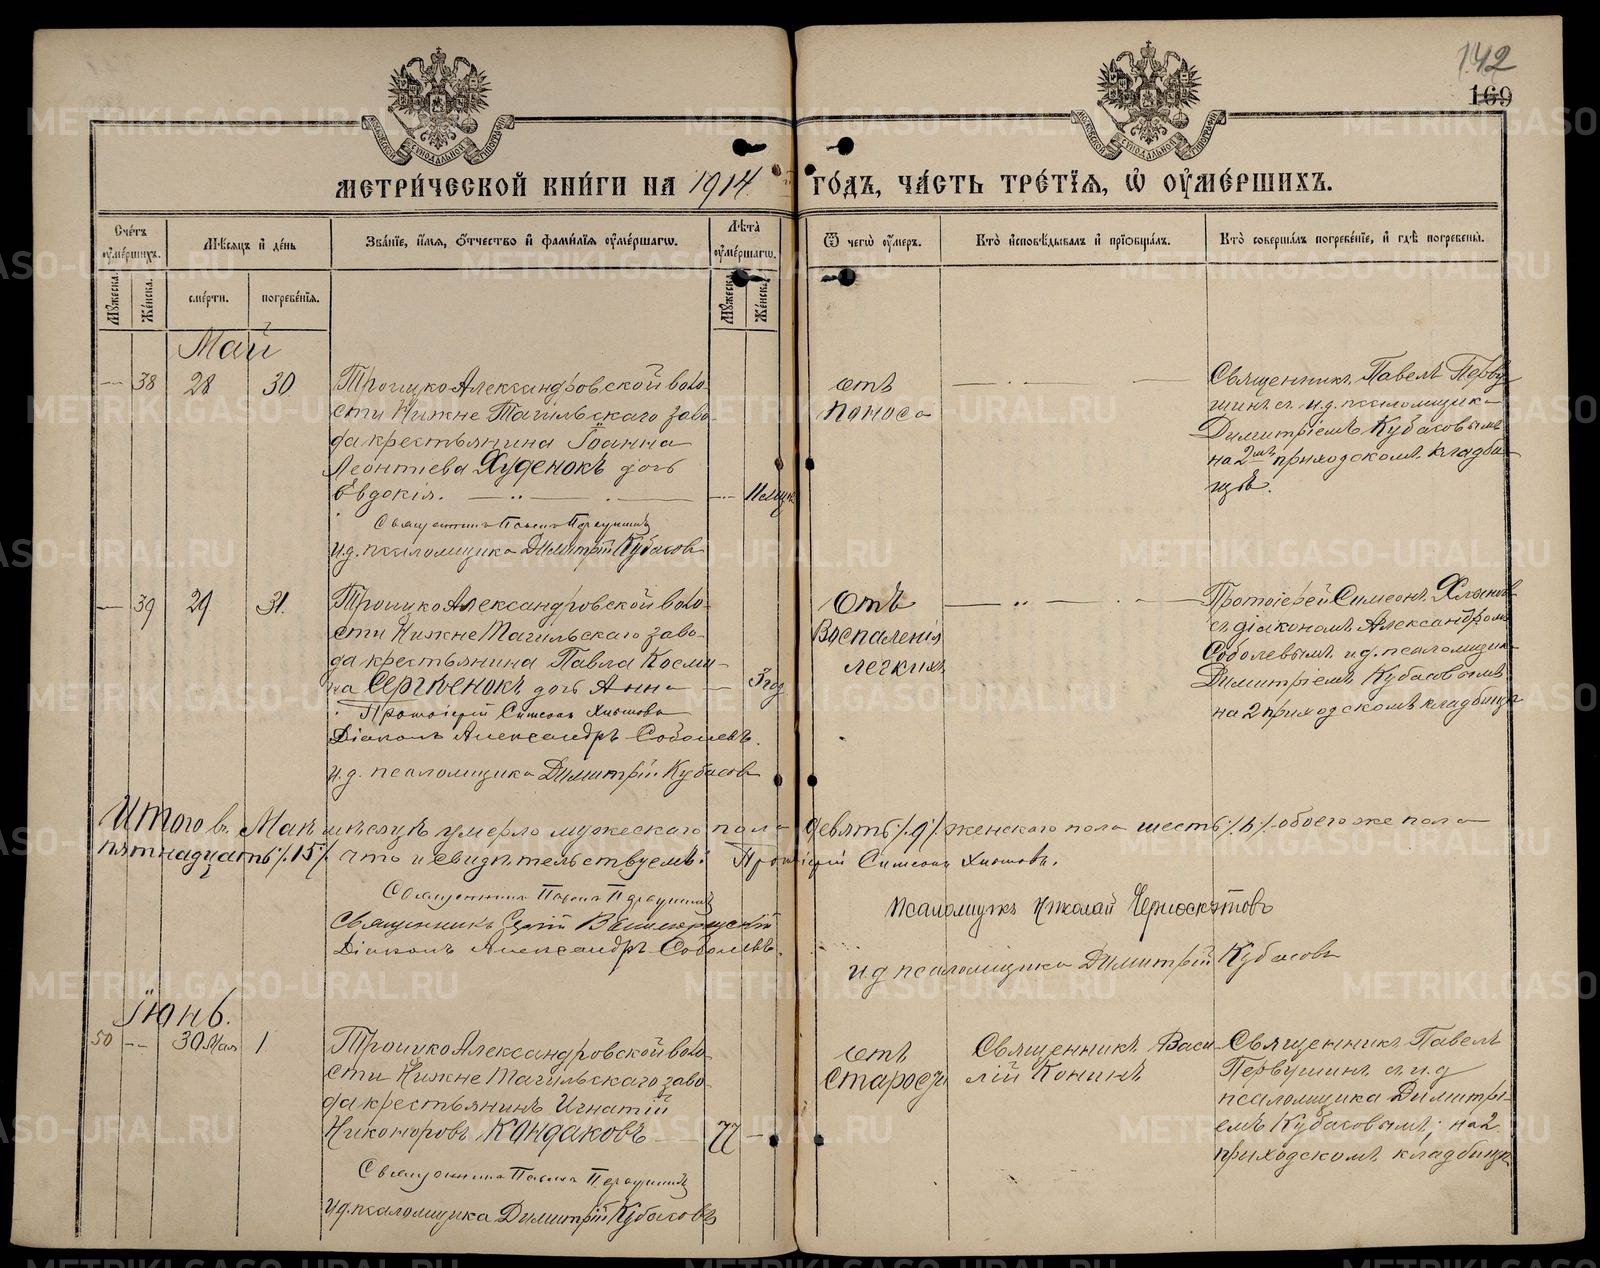 142
169
МОСКОВСКОЙ СѴНОДАЛЬНОЙ ТИПОГРАФІИ
МОСКОВСКОЙ СѴНОДАЛЬНОЙ ТИПОГРАФІИ
МЕТРИ́ЧЕСКОЙ КНИ́ГИ НА 1914 ГО́ДЪ, ЧА́СТЬ ТРЕ́ТІЯ, Ѡ ОУМЕ́РШИХЪ.
Сче́тъ оуме́ршихъ.
Мѣ́сяцъ и де́нь
Зва́нїе, и́мя, о́тчество и фами́лїя оуме́ршагѡ.
Лѣ́та оуме́ршагѡ.
Ѿ чегѡ̀ оу́меръ.
Кто̀ исповѣ́дывалъ и прїобща́лъ.
Кто̀ соверша́лъ погребе́нїе, и гдѣ̀ погребены̀.
Му́жеска.
Же́нска.
сме́рти.
погребе́нїя.
Му́жеска.
Же́нска.
Май
— 38 28 30
Троицко Александровской воло-
сти Нижне Тагильскаго заво-
да крестьянина Іоанна
Леонтіева Худенокъ дочь
Евдокія.
Священникъ Павелъ Первушинъ
И.д. псаломщика Димитрій Кубасовъ
отъ
поноса
Священникъ Павелъ Перву
шинъ съ и.д. псаломщика
Димитріемъ Кубасовымъ
на 2мъ приходскомъ кладби-
щѣ.
— 39 29 31.
Троицко Александровской воло-
сти Нижне Тагильскаго заво-
да крестьянина Павла Косми-
на Сергѣенокъ дочь Анна — 3 год
Протоіерей Симеонъ Хлыновъ
Діаконъ Александръ Соболевъ.
и.д. псаломщика Димитрій Кубасовъ
Отъ
Воспаленія
легкихъ
Протоіерей Симеонъ Хлыновъ
съ діакономъ Александромъ
Соболевымъ и.д. псаломщика
Димитріемъ Кубасовымъ
на 2 приходскомъ кладбищѣ
Итого въ Маѣ мѣсяцѣ умерло мужескаго пола девять /9/ женскаго пола шесть /6/ обоего же пола
пятнадцать /15/ что и свидѣтельствуемъ: Протоіерей Симеонъ Хлыновъ.
Священникъ Павелъ Первушинъ
Псаломщикъ Николай Черноскутовъ
Священникъ
Діаконъ Александръ Соболевъ.
и.д псаломщика Димитрій Кубасовъ
Іюнь.
50 — 30 Мая 1.
Троицко Александровской воло-
сти Нижне Тагильскаго заво-
да крестьянинъ Игнатій
Никоноровъ Кондаковъ — 77 —
Священникъ Павелъ Первушинъ
И.д. псаломщика Димитрій Кубасовъ
отъ
старости
Священникъ Васи
лій Конинъ
Священникъ Павелъ
Первушинъ съ и.д
псаломщика Димитрі-
емъ Кубасовымъ, на 2
приходскомъ кладбищѣ
METRIKI.GASO-URAL.RU